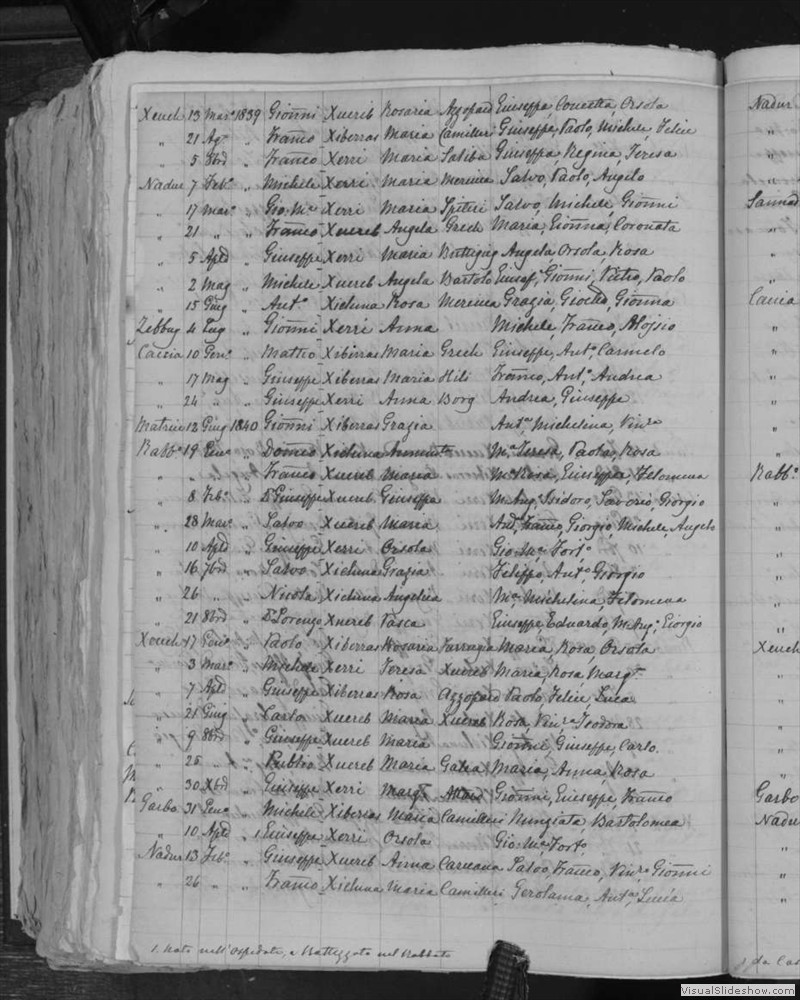 Xeuch 13 Mar° 1839 Gionni Xuereb Rosaria Azzopard Giuseppa, Concetta, Orsola
" 21 Ag° " Franco Xiberras Maria Camilleri Giuseppa, Paolo, Michele, Felice
" 5 8bre " Franco Xerri Maria Saliba Giuseppa, Regina, Teresa
Nadur 7 Feb° " Michele Xerri Maria Mercieca Salvo, Paolo, Angelo
" 17 Mar° " Gio: Ma Xerri Maria Spiteri Salvo, Michele, Gionni
" 21 " " Franco Xuereb Angela Grech Maria, Gionna, Coronata
" 5 Aple " Giuseppe Xerri Maria Buttigieg Angela, Orsola, Rosa
" 2 Mag " Michele Xuereb Angela Bartolo Giusep°, Gionni, Pietro, Paolo
" 15 Giug " Ant° Xicluna Rosa Mercieca Grazia, Gionna
Zebbug 4 Lug " Gionni Xerri Anna Michele, Franco, Alojsio
Caccia 10 Gen° " Matteo Xiberras Maria Grech Giuseppe, Ant°, Carmelo
" 17 Mag " Giuseppe Xiberras Maria Hili Franco, Ant°, Andrea
" 24 " " Giuseppe Xerri Anna Borg Andrea, Giuseppe
Matrice 12 Giug 1840 Gionni Xiberras Grazia Anta, Michelina, Vinza
Rabb° 19 Gen° " Domco Xicluna Assunta Ma Teresa, Paola, Rosa
" " " Franco Xuereb Maria Ma Rosa, Giuseppa, Filomena
" 8 Feb° " Dr Giuseppe Xuereb Giuseppa M. Aug°, Isidoro, Saverio, Giorgio
" 28 Mar° " Salvo Xuereb Maria Ant°, Franco, Giorgio, Michele, Angelo
" 10 Aple " Giuseppe Xerri Orsola Gio: Ma Fort°
" 16 7bre " Salvo Xicluna Grazia Filippo, Ant°, Giorgio
" 26 " " Nicola Xicluna Angelica Ma, Michelina, Filomena
" 21 8bre " Dr Lorenzo Xuereb Pasca Giuseppe, Eduardo, M. Aug°, Giorgio
Xeuch 17 Gen° " Paolo Xiberras Rosaria Farrugia Maria, Rosa, Orsola
" 3 Mar° " Michele Xerri Teresa Xuereb Maria, Rosa, Marga
" 7 Aple " Giuseppe Xiberras Rosa Azzopard Paolo, Felice, Luca
" 21 Giug " Carlo Xuereb Maria Xuereb Rosa, Vinza Teodora
" 9 8bre " Giuseppe Xuereb Maria Gionni, Giuseppe, Carlo
" 25 " " Publio Xuereb Maria Galea Maria, Anna, Rosa
" 30 Xbre " Giuseppe Xerri Marga Gionni, Giuseppe, Franco
Garbo 31 Gen° " Michele Xiberras Maria Camilleri Nunziata, Bartolomea
" 10 Aple " 1 Giuseppe Xerri Orsola Gio. Ma Fort°
Nadur 13 Feb° " Giuseppe Xuereb Anna Caruana Salvo, Franco, Vinzo, Gionni
" 26 " " Franco Xicluna Maria Camilleri Gerolama, Anta, Lucia
1. Nato nell'Ospedale, e Battezzato nel Rabbato
Nadur
Sannat
Caccia
Rabb°
Xeuch
Garbo
Nadur
VisualSlideshow.com